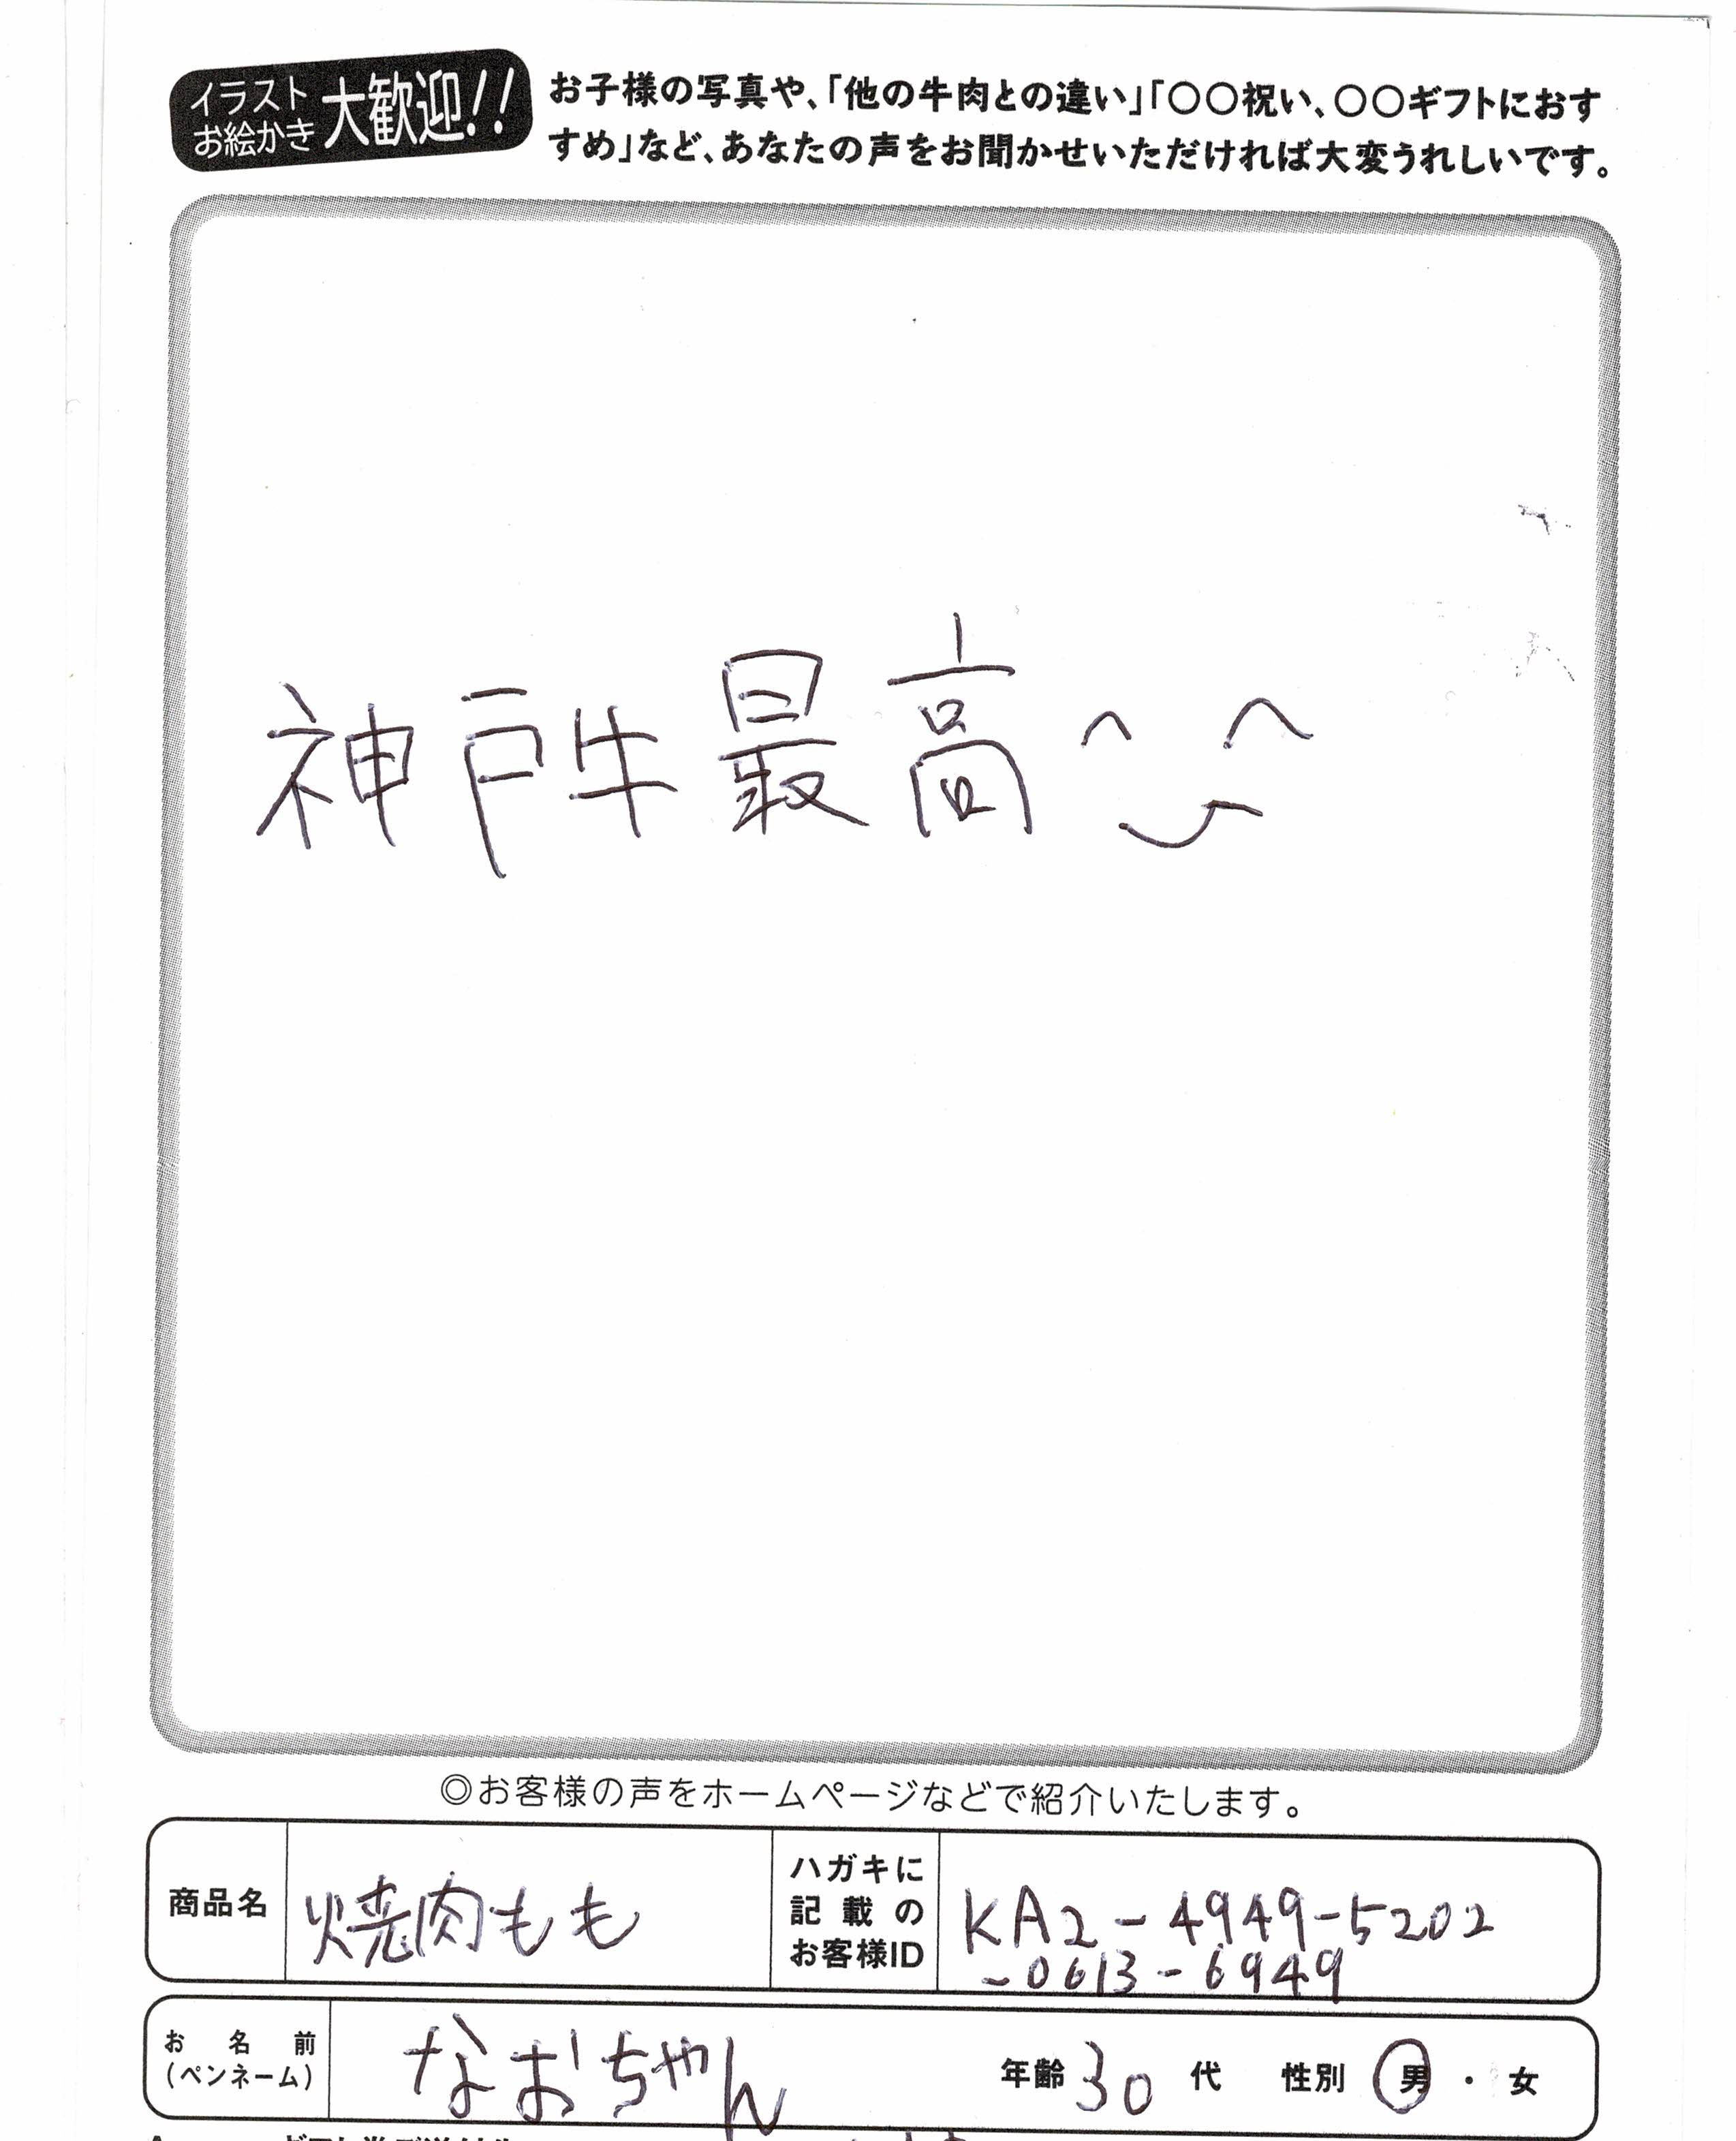 イラスト
お絵かき
大歓迎!!
お子様の写真や、「他の牛肉との違い」「〇〇祝い、〇〇ギフトにおす
すめ」など、あなたの声をお聞かせいただければ大変うれしいです。
神戸牛最高^ ^
◎お客様の声をホームページなどで紹介いたします。
商品名 焼肉もも
ハガキに
記載の
お客様ID
KA2-4949-5202
-0613-6949
お名前
(ペンネーム)
なおちゃん 年齢 30 代 性別 男・女